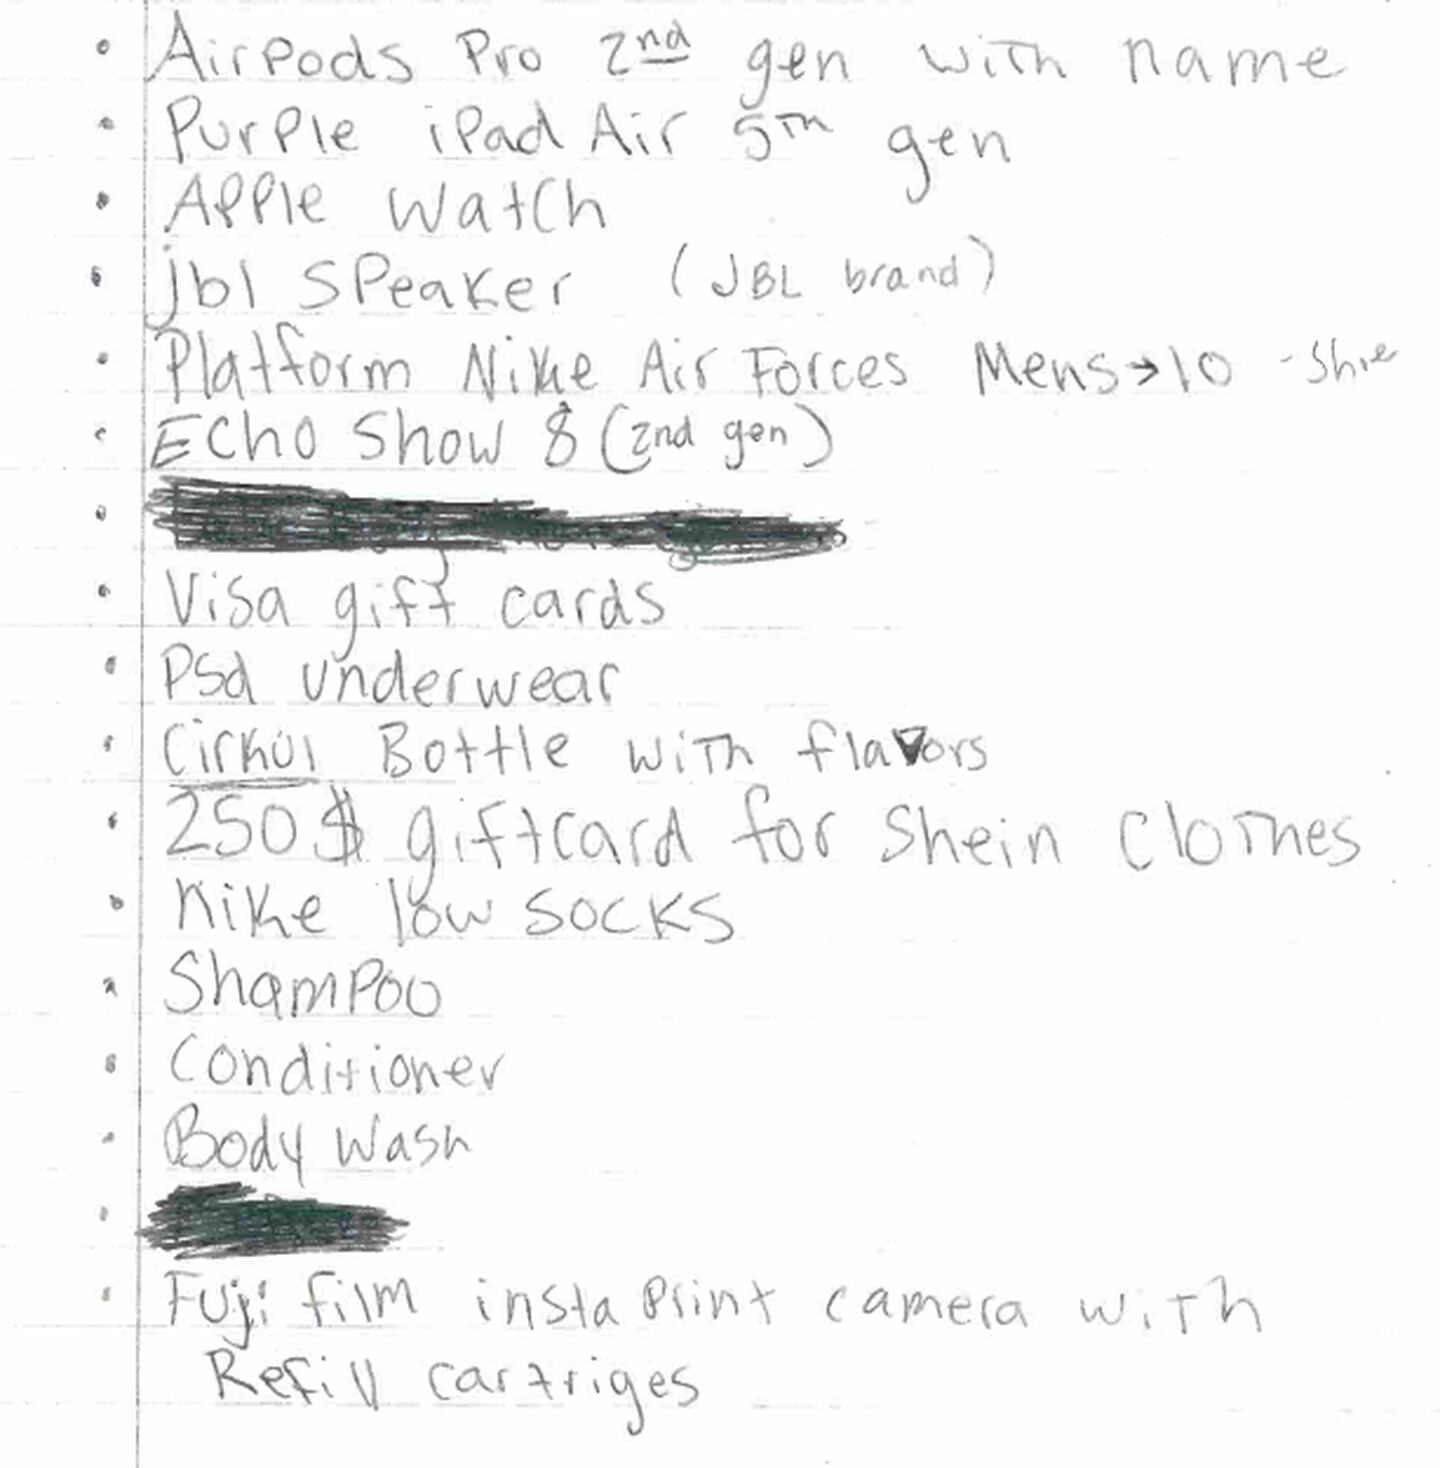 • Airpods Pro 2nd gen with name
• Purple iPad Air 5th gen
• Apple Watch
• jbl Speaker (JBL brand)
• Platform Nike Air Forces Mens→10 -Shoe
• Echo Show 8 (2nd gen)
•
• Visa gift cards
• Psd underwear
• Cirkul Bottle with flavors
• 250$ giftcard for Shein Clothes
• Nike low socks
• Shampoo
• Conditioner
• Body Wash
•
• Fuji film insta Print camera with
Refill cartriges